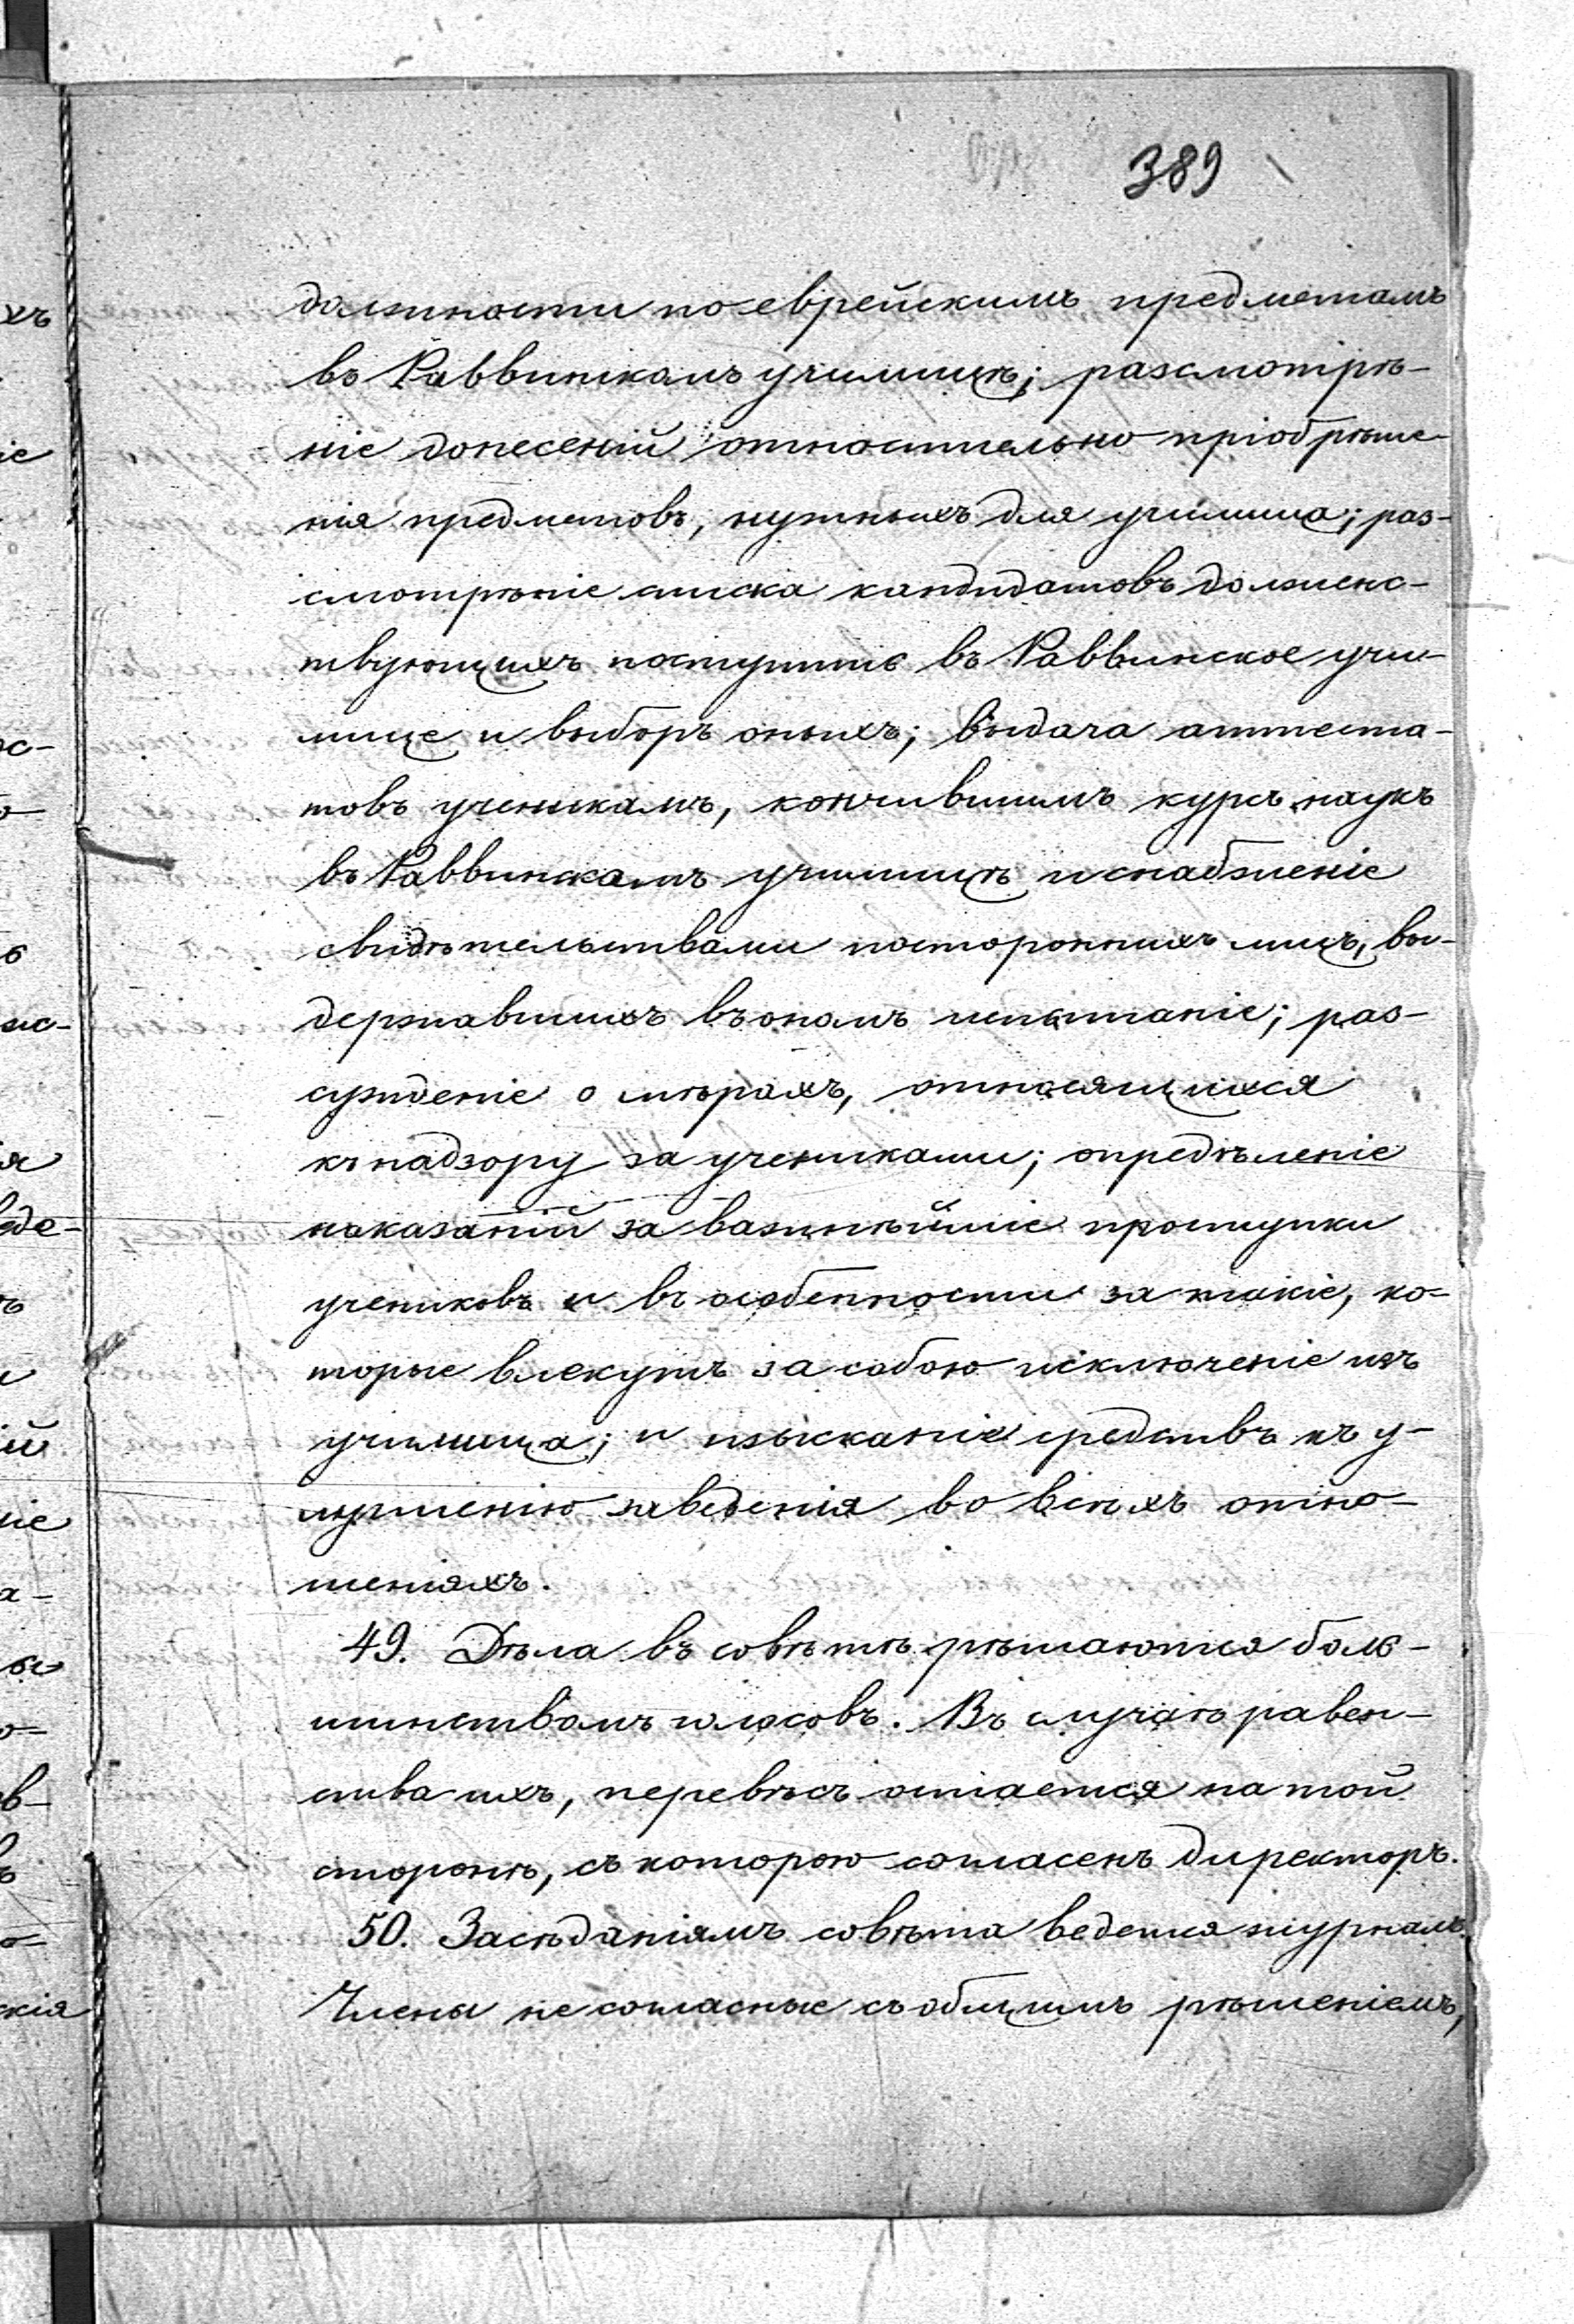 389
должности по еврейскимъ предметамъ
въ Раввинскомъ училищѣ; разсмотрѣ-
ніе донесеній относительно пріобрѣте-
нія предметовъ, нужныхъ для училища; раз-
смотрѣніе списка кандидатовъ долженс-
твующихъ поступить въ Раввинское учи-
лище и выборъ оныхъ; выдача аттеста-
товъ ученикамъ, кончившимъ курсъ наукъ
въ Раввинскомъ училищѣ и снабженіе
свидѣтельствами постороннихъ лицъ, вы-
державшихъ въ ономъ испытаніе; раз-
сужденіе о мѣрахъ, относящихся
къ надзору за учениками; опредѣленіе
наказаній за важнѣйшіе проступки
учениковъ и въ особенности за такіе, ко-
торые влекутъ за собою исключеніе изъ
училища; и изысканіе средствъ къ у-
лучшенію заведенія во всѣхъ отно-
шеніяхъ.
49. Дѣла въ совѣтѣ рѣшаются боль-
шинствомъ голосовъ. Въ случаѣ равен-
ства ихъ, перевѣсъ остается на той
сторонѣ, съ которою согласенъ директоръ.
50. Засѣданіямъ совѣта ведется журналъ.
Члены не согласные съ общимъ рѣшеніемъ,